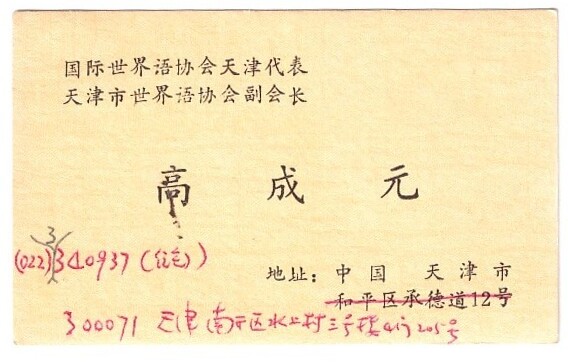 国际世界语协会天津代表
天津市世界语协会副会长
高成元
3
(022)340937(宅)
地址：中国 天津市
和平区承德道12号
300071 天津南开区水上村三号楼4门205号